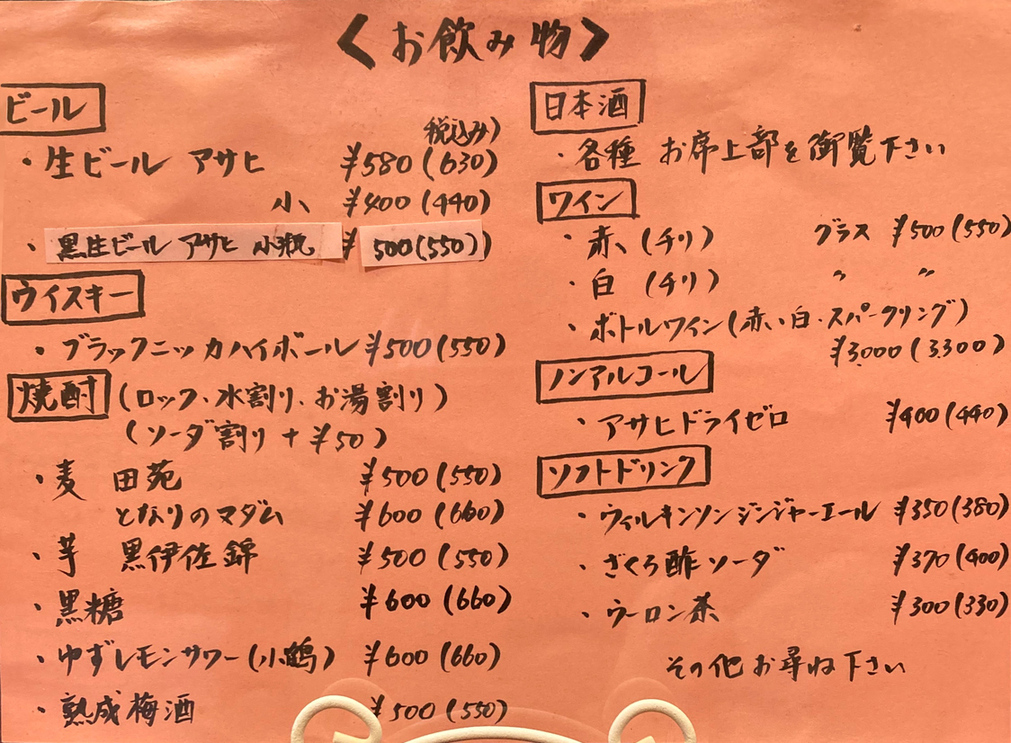 ＜お飲み物＞
ビール
税込み)
・生ビール アサヒ ¥580(630)
小 ¥400(440)
・黒生ビール アサヒ 小瓶 ¥500(550))
ウイスキー
・ブラックニッカハイボール ¥500(550)
焼酎 (ロック、水割り、お湯割り)
(ソーダ割り+¥50)
・麦 田苑 ¥500(550)
となりのマダム ¥600(660)
・芋 黒伊佐錦 ¥500(550)
・黒糖 ¥600(660)
・ゆずレモンサワー(小鶴) ¥600(660)
・熟成梅酒 ¥500(550)
日本酒
・各種 お席上部を御覧下さい
ワイン
・赤 (チリ) グラス ¥500(550)
・白 (チリ) 〃 〃
・ボトルワイン(赤・白・スパークリング)
¥3,000(3,300)
ノンアルコール
・アサヒドライゼロ ¥400(440)
ソフトドリンク
・ウィルキンソンジンジャーエール ¥350(380)
・ざくろ酢ソーダ ¥370(400)
・ウーロン茶 ¥300(330)
その他お尋ね下さい